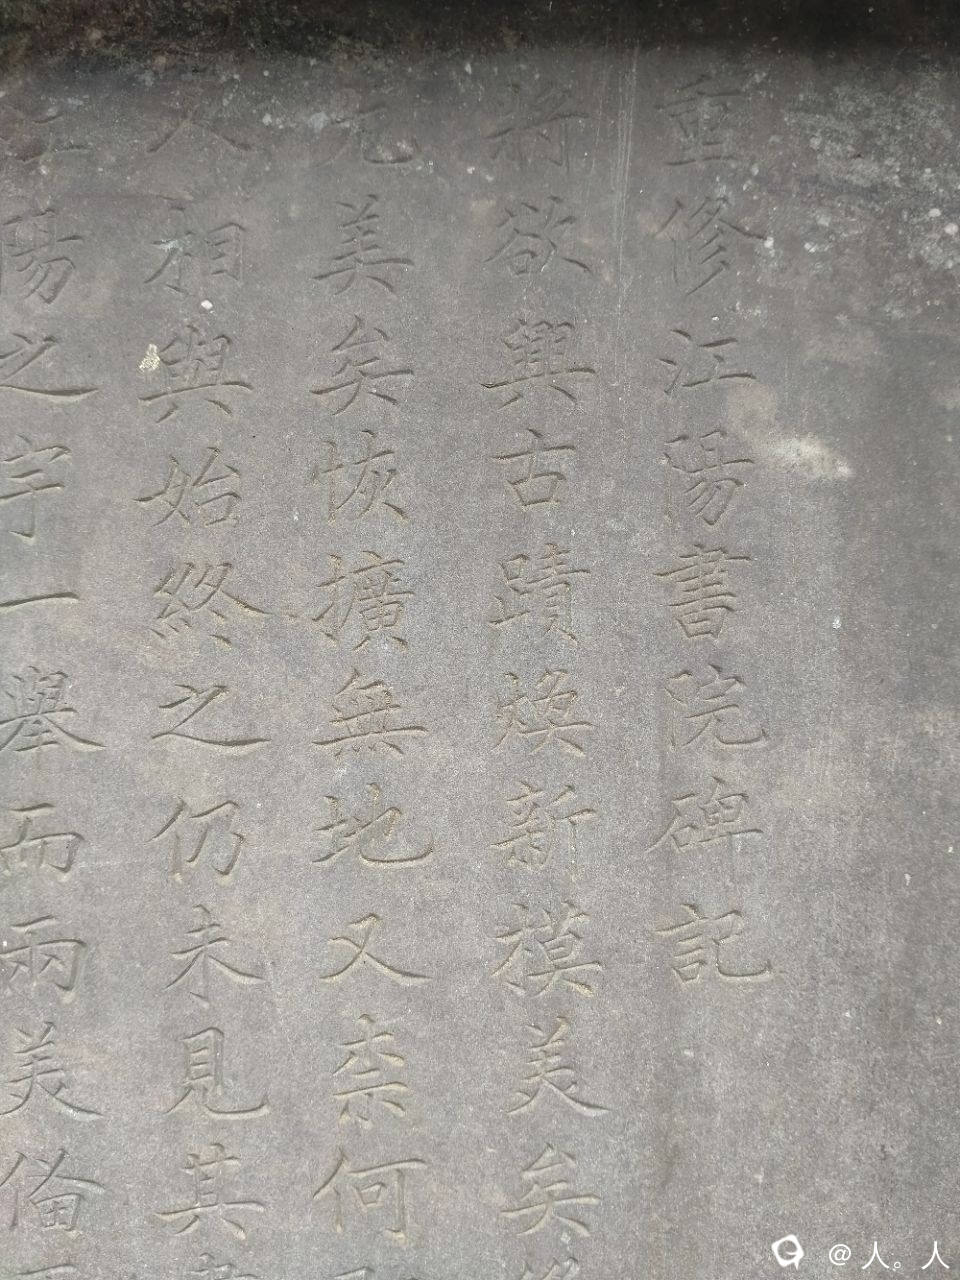 重修江陽書院碑記
將欲興古蹟煥新模美矣
元美矣恢擴無地又柰何
人相與始終之仍未見其
陽之字一舉而兩美僃
@人。人